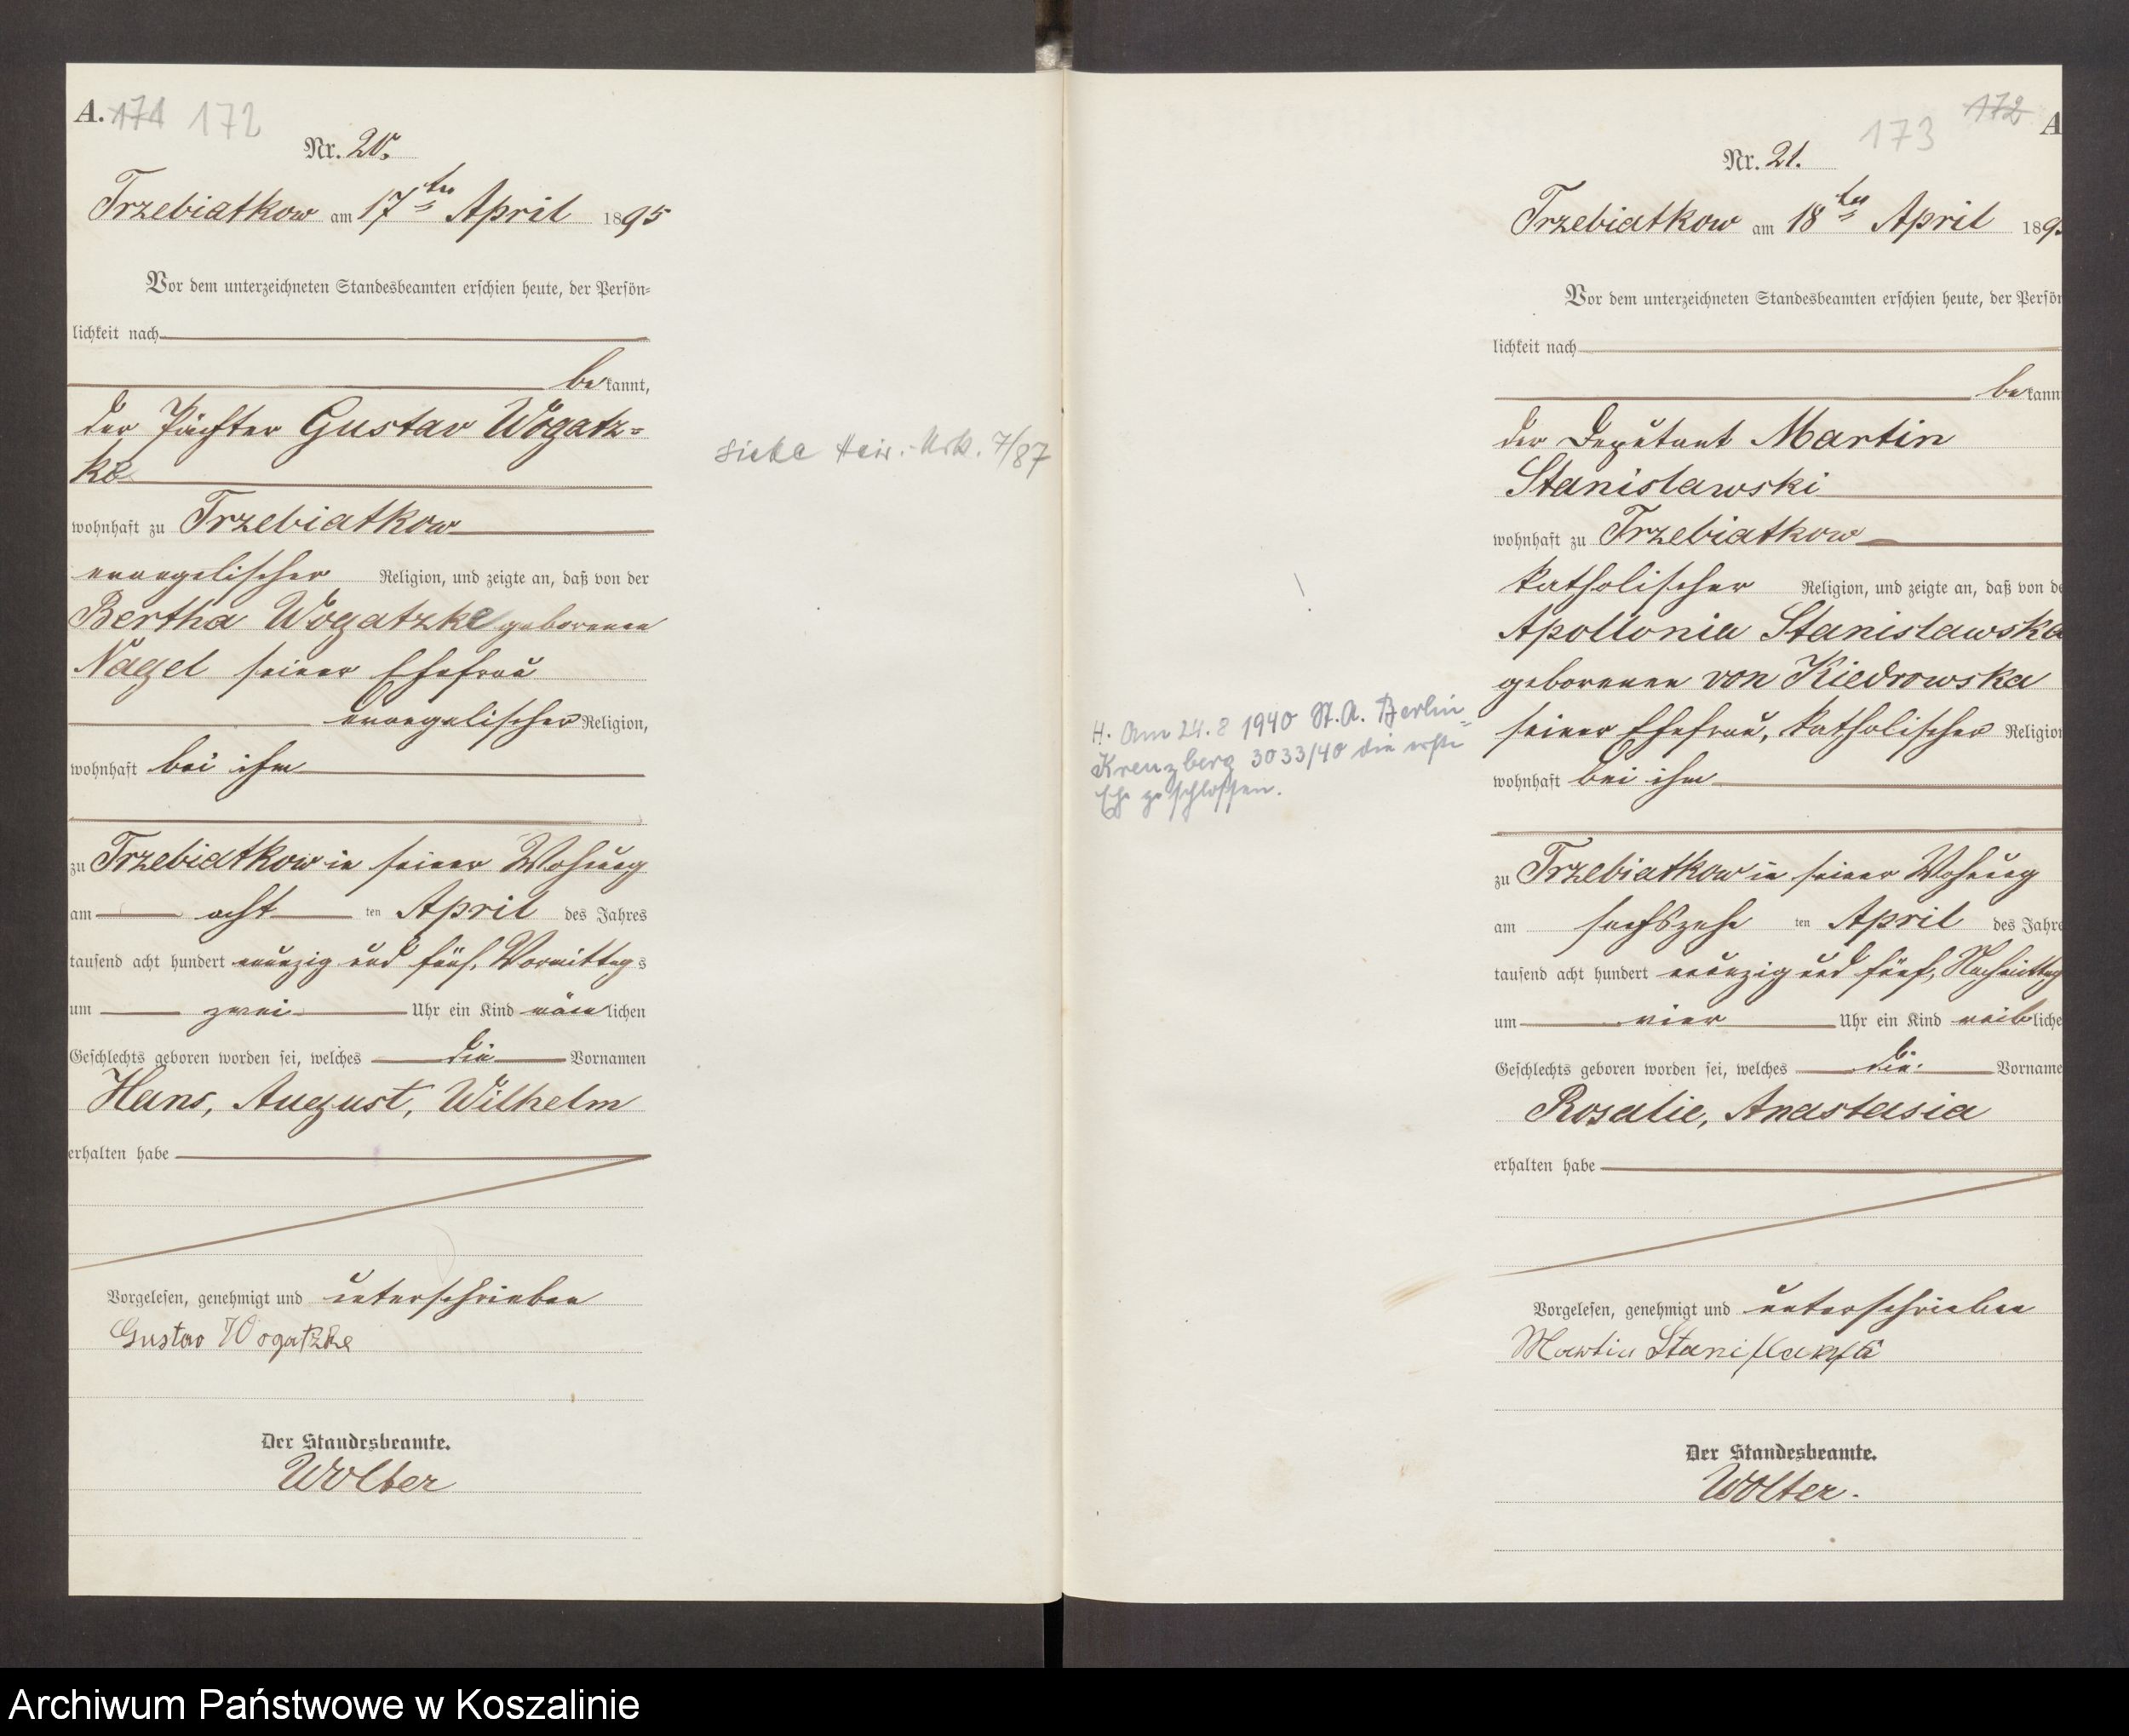 A. 171 172
Nr. 20.
Trzebiatkow am 17ten April 1895
Vor dem unterzeichneten Standesbeamten erschien heute, der Persön-
lichkeit nach
bekannt,
der Pächter Gustav Wogatz-
ke
wohnhaft zu Trzebiatkow
evangelischer Religion, und zeigte an, daß von der
Bertha Wogatzke geborenen
Nagel seiner Ehefrau
evangelischer Religion,
wohnhaft bei ihm
zu Trzebiatkow in seiner Wohnung
am acht ten April des Jahres
tausend acht hundert neunzig und fünf, Vormittags
um zwei Uhr ein Kind männlichen
Geschlechts geboren worden sei, welches die Vornamen
Hans, August, Wilhelm
erhalten habe
Vorgelesen, genehmigt und unterschrieben
Gustav Wogatzke
Der Standesbeamte.
Wolter
siehe Heir.-Urk. 7/87
172 A
173
Nr. 21.
Trzebiatkow am 18ten April 189
Vor dem unterzeichneten Standesbeamten erschien heute, der Persön
lichkeit nach
bekann
der Deputant Martin
Stanislawski
wohnhaft zu Trzebiatkow
katholischer Religion, und zeigte an, daß von de
Apollonia Stanislawska
geborenen von Kiedrowska
seiner Ehefrau, katholischer Religion
wohnhaft bei ihm
zu Trzebiatkow in seiner Wohnung
am sechszehn ten April des Jahre
tausend acht hundert neunzig und fünf, Nachmittag
um vier Uhr ein Kind weibliche
Geschlechts geboren worden sei, welches die Vorname
Rosalie, Anastasia
erhalten habe
Vorgelesen, genehmigt und unterschrieben
Martin Stanislawski
Der Standesbeamte.
Wolter.
H. Am 24.8 1940 St.A. Berlin-
Kreuzberg 3033/40 die erste
Ehe geschlossen.
Archiwum Państwowe w Koszalinie